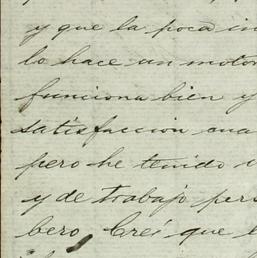 y que la poca in
lo hace un motor
funciona bien y
satisfaccion cua
pero he tenido
y de trabajo per
bero, Creí que e